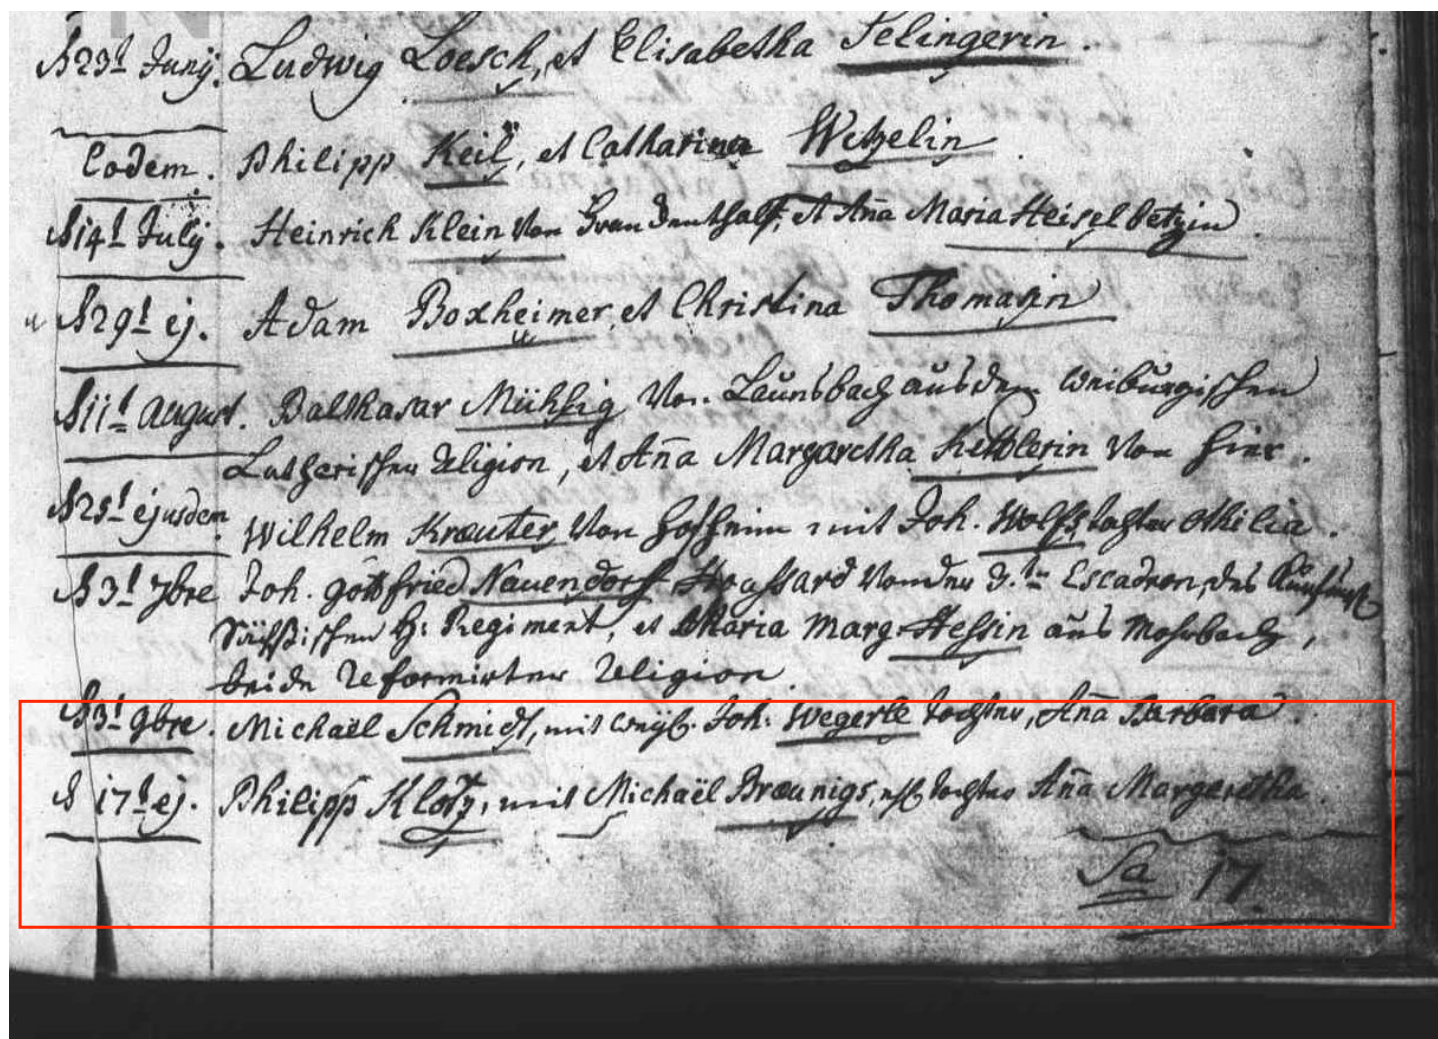 d 23t Junij. Ludwig Loesch, et Elisabetha Selingerin.
Eodem. Philipp Keil, et Catharina Wetzelin
d 14t July. Heinrich Klein von et Aña Maria Heiselbetzin
d 29t ej. Adam Boxheimer, et Christina Thomasin
d 11t August. Balthasar Mühsig von Launsbach aus dem Weilburgischen
Lutherischer Religion, et Aña Margaretha Kettlerin von hier.
d 25t ejusdem Wilhelm Kræuter von Hofheim mit Joh. Wolfs tochter Othilia.
d 3t 7bre Joh. Gottfried Nauendorf von der 3.ten Escadron, des
Sächsischen H: Regiment, et Maria Marg. Hessin aus Morbach,
beide Reformirter Religion
d 3t 9bre. Michaël Schmidt, mit weyl. Joh: Wegerle tochter, Aña Barbara.
d 17t ej. Philipp Klotz, mit Michaël Bræunigs, tochter Aña Margaretha.
Sa 17.